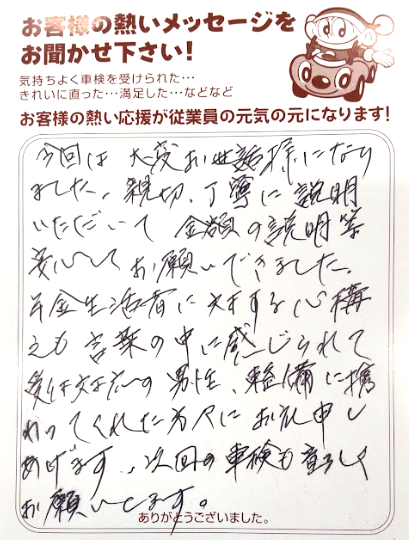 お客様の熱いメッセージを
お聞かせ下さい!
気持ちよく車検を受けられた…
きれいに直った…満足した…などなど
お客様の熱い応援が従業員の元気の元になります!
今回は大変お世話様になり
ました。親切、丁寧に説明
いただいて金額の説明等
安心してお願いできました。
年金生活者に対する心構
えも言葉の中に感じられて
受け対応の男性、整備に携
わってくれた方々にお礼申し
あげます、次回の車検も宜しく
お願いします。
ありがとうございました。